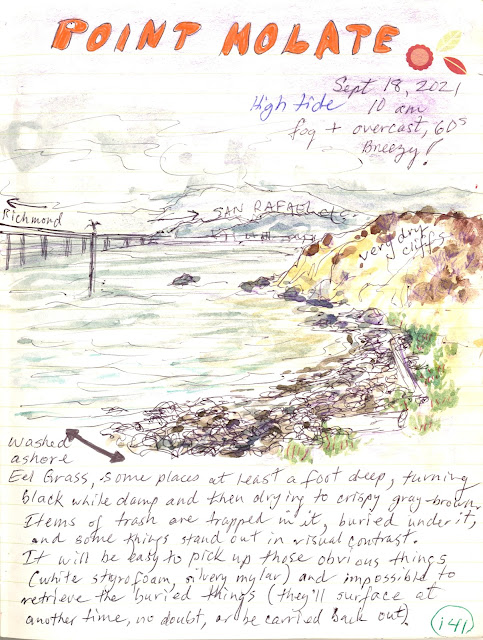 POINT MOLATE
Sept 18, 2021
High tide 10 am
fog + overcast, 60s
Breezy!
Richmond
SAN RAFAEL etc.
very dry
cliffs
washed
ashore
Eel Grass, some places at least a foot deep, turning
black while damp and then drying to crispy gray-brown.
Items of trash are trapped in it, buried under it,
and some things stand out in visual contrast.
It will be easy to pick up those obvious things
(white styrofoam, silvery mylar) and impossible to
retrieve the buried things (they'll surface at
another time, no doubt, or be carried back out).
141